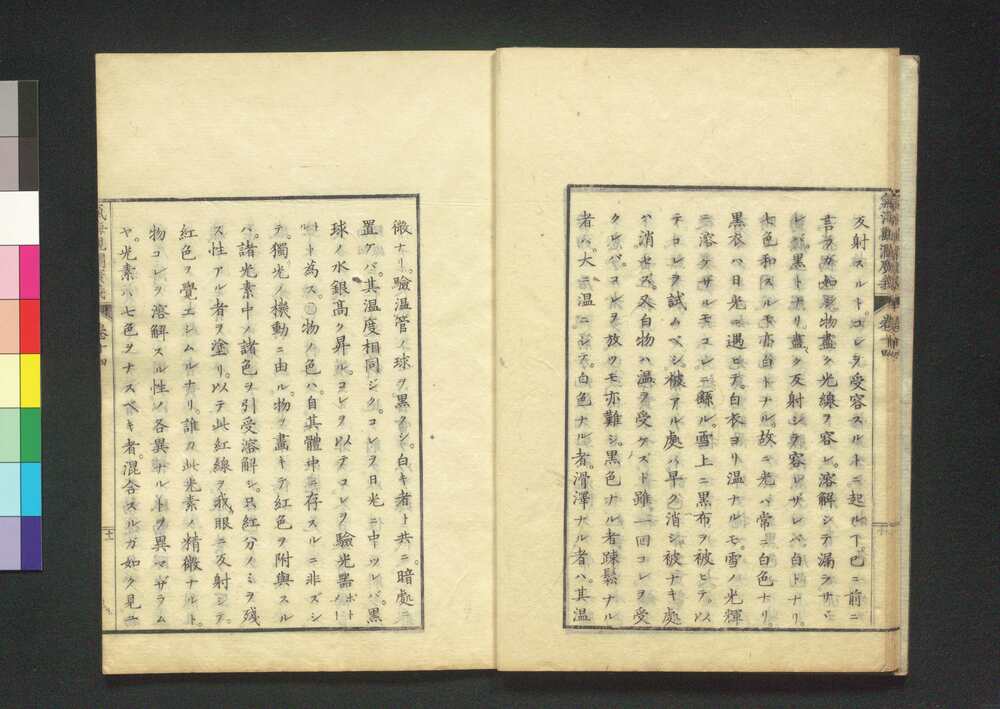 反射スルトコレヲ受容スルトニ起ル丁已ニ前ニ
言ヲガ如シ物盡ク光線ヲ容レ溶解シテ漏ラサヾ
レバ黒トナリ盡ク反射シテ容レザレバ白トナリ
七色和スルモ亦白トナル故ニ光ハ常ニ白色ナリ
黒衣ハ日光ニ遇ヒテ白衣ヨリ温ナルモ雪ノ光輝
ニ溶ケザルモコレニ繇ル雪上ニ黒布ヲ被ヒテ以
テコレヲ試ムベシ被アル處ハ早ク消シ被ナキ處
ハ消セズ又白物ハ温ヲ受ケズト雖一回コレヲ受
クレバコレヲ放ツモ亦難シ黒色ナル者疎鬆ナル
者ハ大ニ温ニシテ白色ナル者滑澤ナル者ハ其温
微ナリ驗温管ノ球ヲ黒クシ白キ者ト共ニ暗處ニ
置ケバ其温度相同ジクコレヲ日光ニ中ツレバ黒
球ノ水銀高ク昇ルコレヲ以テコレヲ驗光器ポト
ノートル
ト為ス○物ノ色ハ自其體中ニ存スルニ非ズシ
テ獨光ノ機動ニ由ル物ヲ畫キテ紅色ヲ附與スル
ハ諸光素中ノ諸色ヲ引受溶解シ只紅分ノミヲ残
ス性アル者ヲ塗リ以テ此紅線ヲ我眼ニ反射シテ
紅色ヲ覺エシムルナリ誰カ此光素ノ精微ナルト
物コレヲ溶解スル性ノ各異ナルトヲ異マザラム
ヤ光素ハ七色ヲナスベキ者混合スルガ如ク見ユ
卷十四
十
卷十四
十一